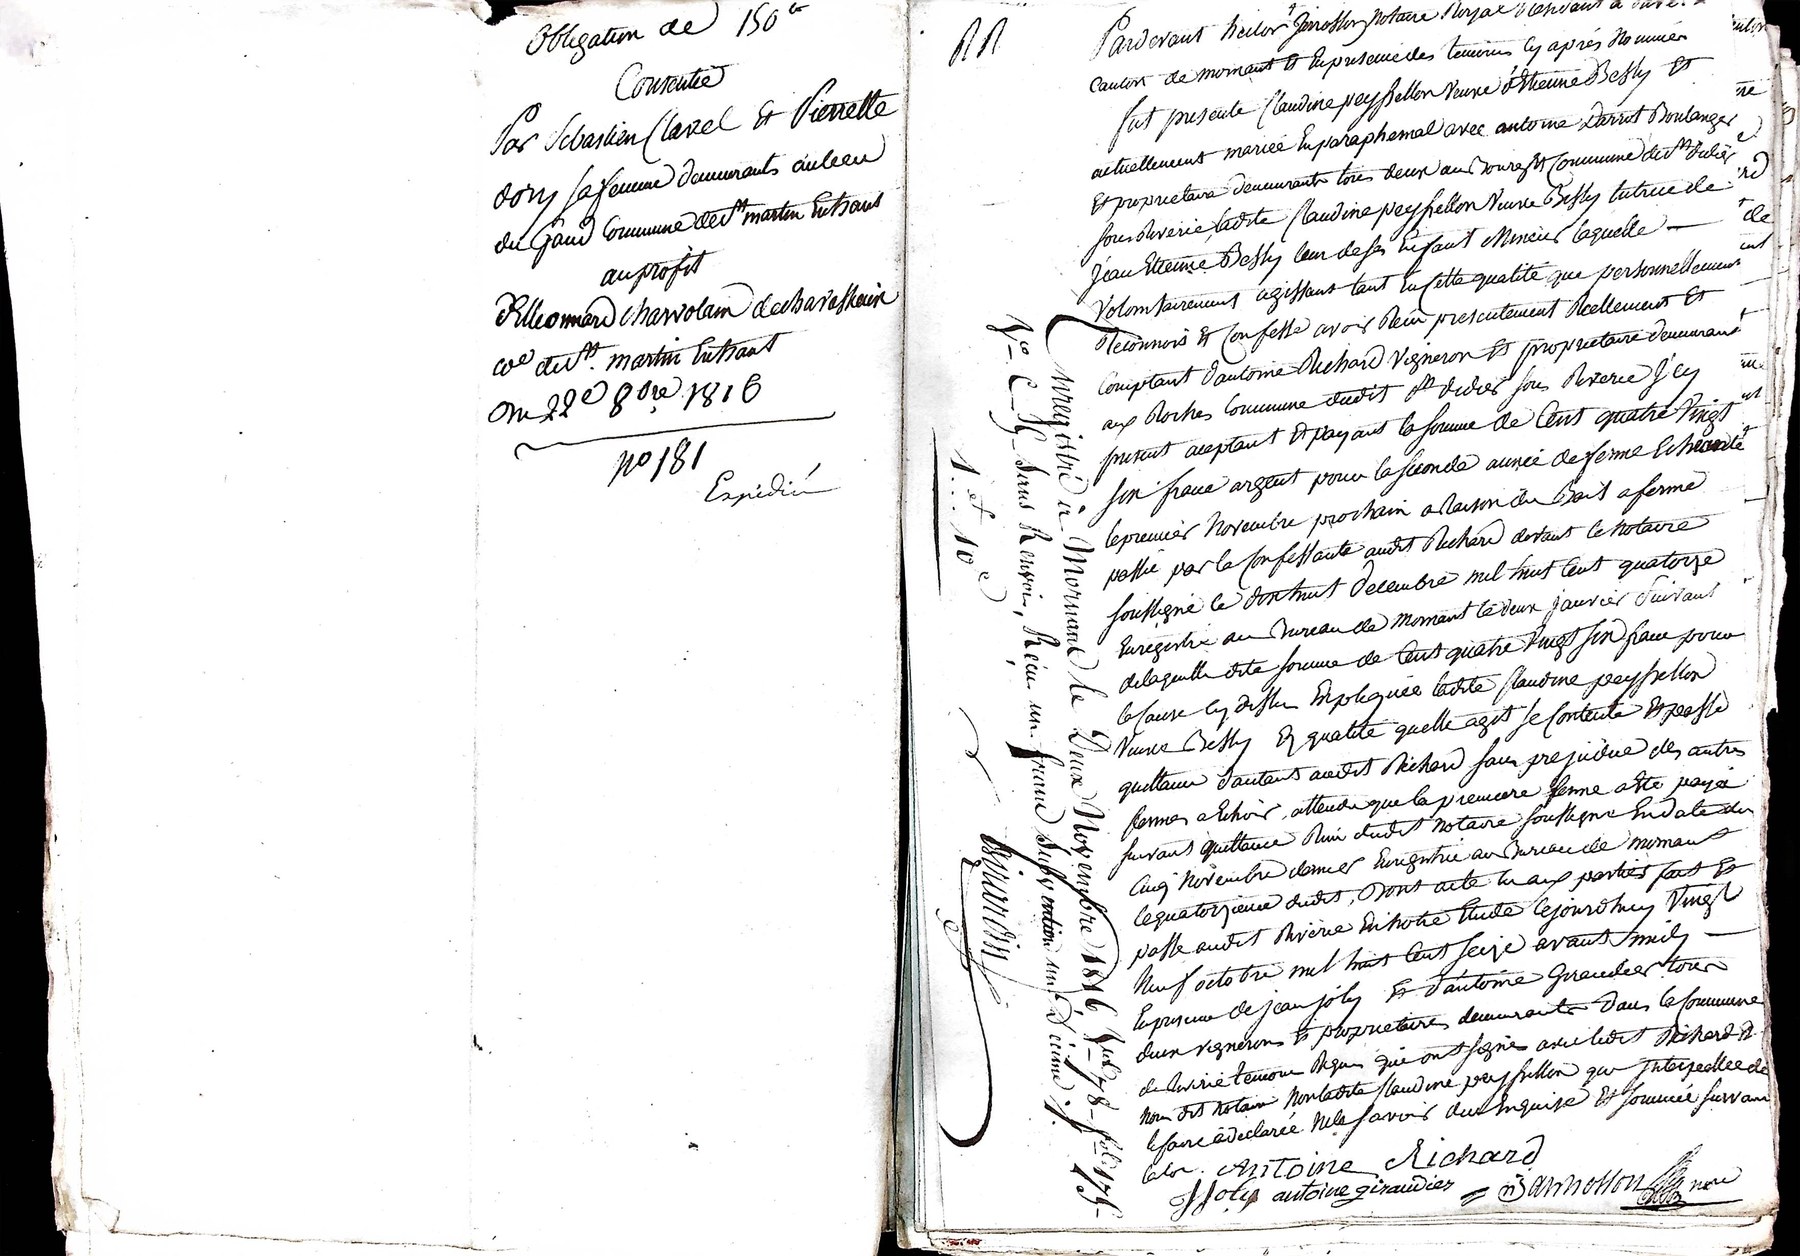 Obligation de 150 fr
Consentie
Par Sebastien Clavel Et Pierrette
sa femme demeurants au lieu
du Commune de St martin Enhaut
au profit
de
cne de St. martin Enhaut
Du 22e 8bre 1816
no 181
Expédié
Pardevant notaire Royal
canton de mornant Et En presence des temoins cy aprés Nommés
fut presente Claudine peyssellon Veuve d'Etienne Bessy Et
actuellement mariée En paraphernal avec antoine Boulanger
Et proprietaire demeurants tous deux au Bourg Et Commune de St didier
sous Riverie, ladite Claudine peyssellon Veuve Bessy tutrice de
Jean Etienne Bessy leur Enfant Mineur laquelle
Volontairement agissant tant En Cette qualité que personnellement
Reconnois Et Confesse avoir Reçu presentement Réellement Et
Comptant d'antoine Richard Vigneron Et proprietaire demeurant
aux Roches Commune dudit St didier sous Riverie Icy
present aceptant Et payant la somme de Cent quatre Vingt
six franc argent pour la seconde année de ferme
le premier Novembre prochain a Raison du Bail a ferme
passé par la Confessante audit Richard devant le Notaire
soussigné le dix huit Decembre mil huit Cent quatorze
Enregistré au Bureau de mornant le deux janvier suivant
de laquelle dite somme de Cent quatre Vingt six franc pour
la Cause cy dessus Expliquée ladite Claudine peyssellon
Veuve Bessy qualité quelle agit se Contente Et passe
quittance d'autant audit Richard sans prejudice des autres
fermes a Echoir, attendu que la premiere ferme a été payée
suivant quittance Reçu dudit notaire soussigné En date du
Cinq Novembre dernier Enregistrée au Bureau de mornant
le quatorzieme dudit, Dont acte lu aux parties fait Et
passé audit Riverie En notre Etude le jourdhuy Vingt
Neuf octobre mil huit Cent seize avant midy
En presence de jean joly Et d'antoine Giraudier tous
deux vignerons Et proprietaires demeurants dans la Commune
de Riverie temoins Requis qui ont signé avec ledit Richard Et
Nous dit notaire Non ladite Claudine peyssellon qui Interpellée de
le faire a declaré Ne le savoir dux Enquise Et sommée suivant
la loi
Antoine Richard
Joly antoine giraudier
Enregistré à Mornant le Deux Novembre 1816, fol. 78
Vo C. Sans Renvoi, Reçu un franc Subvention un Décime
1 et
1.. 10 c